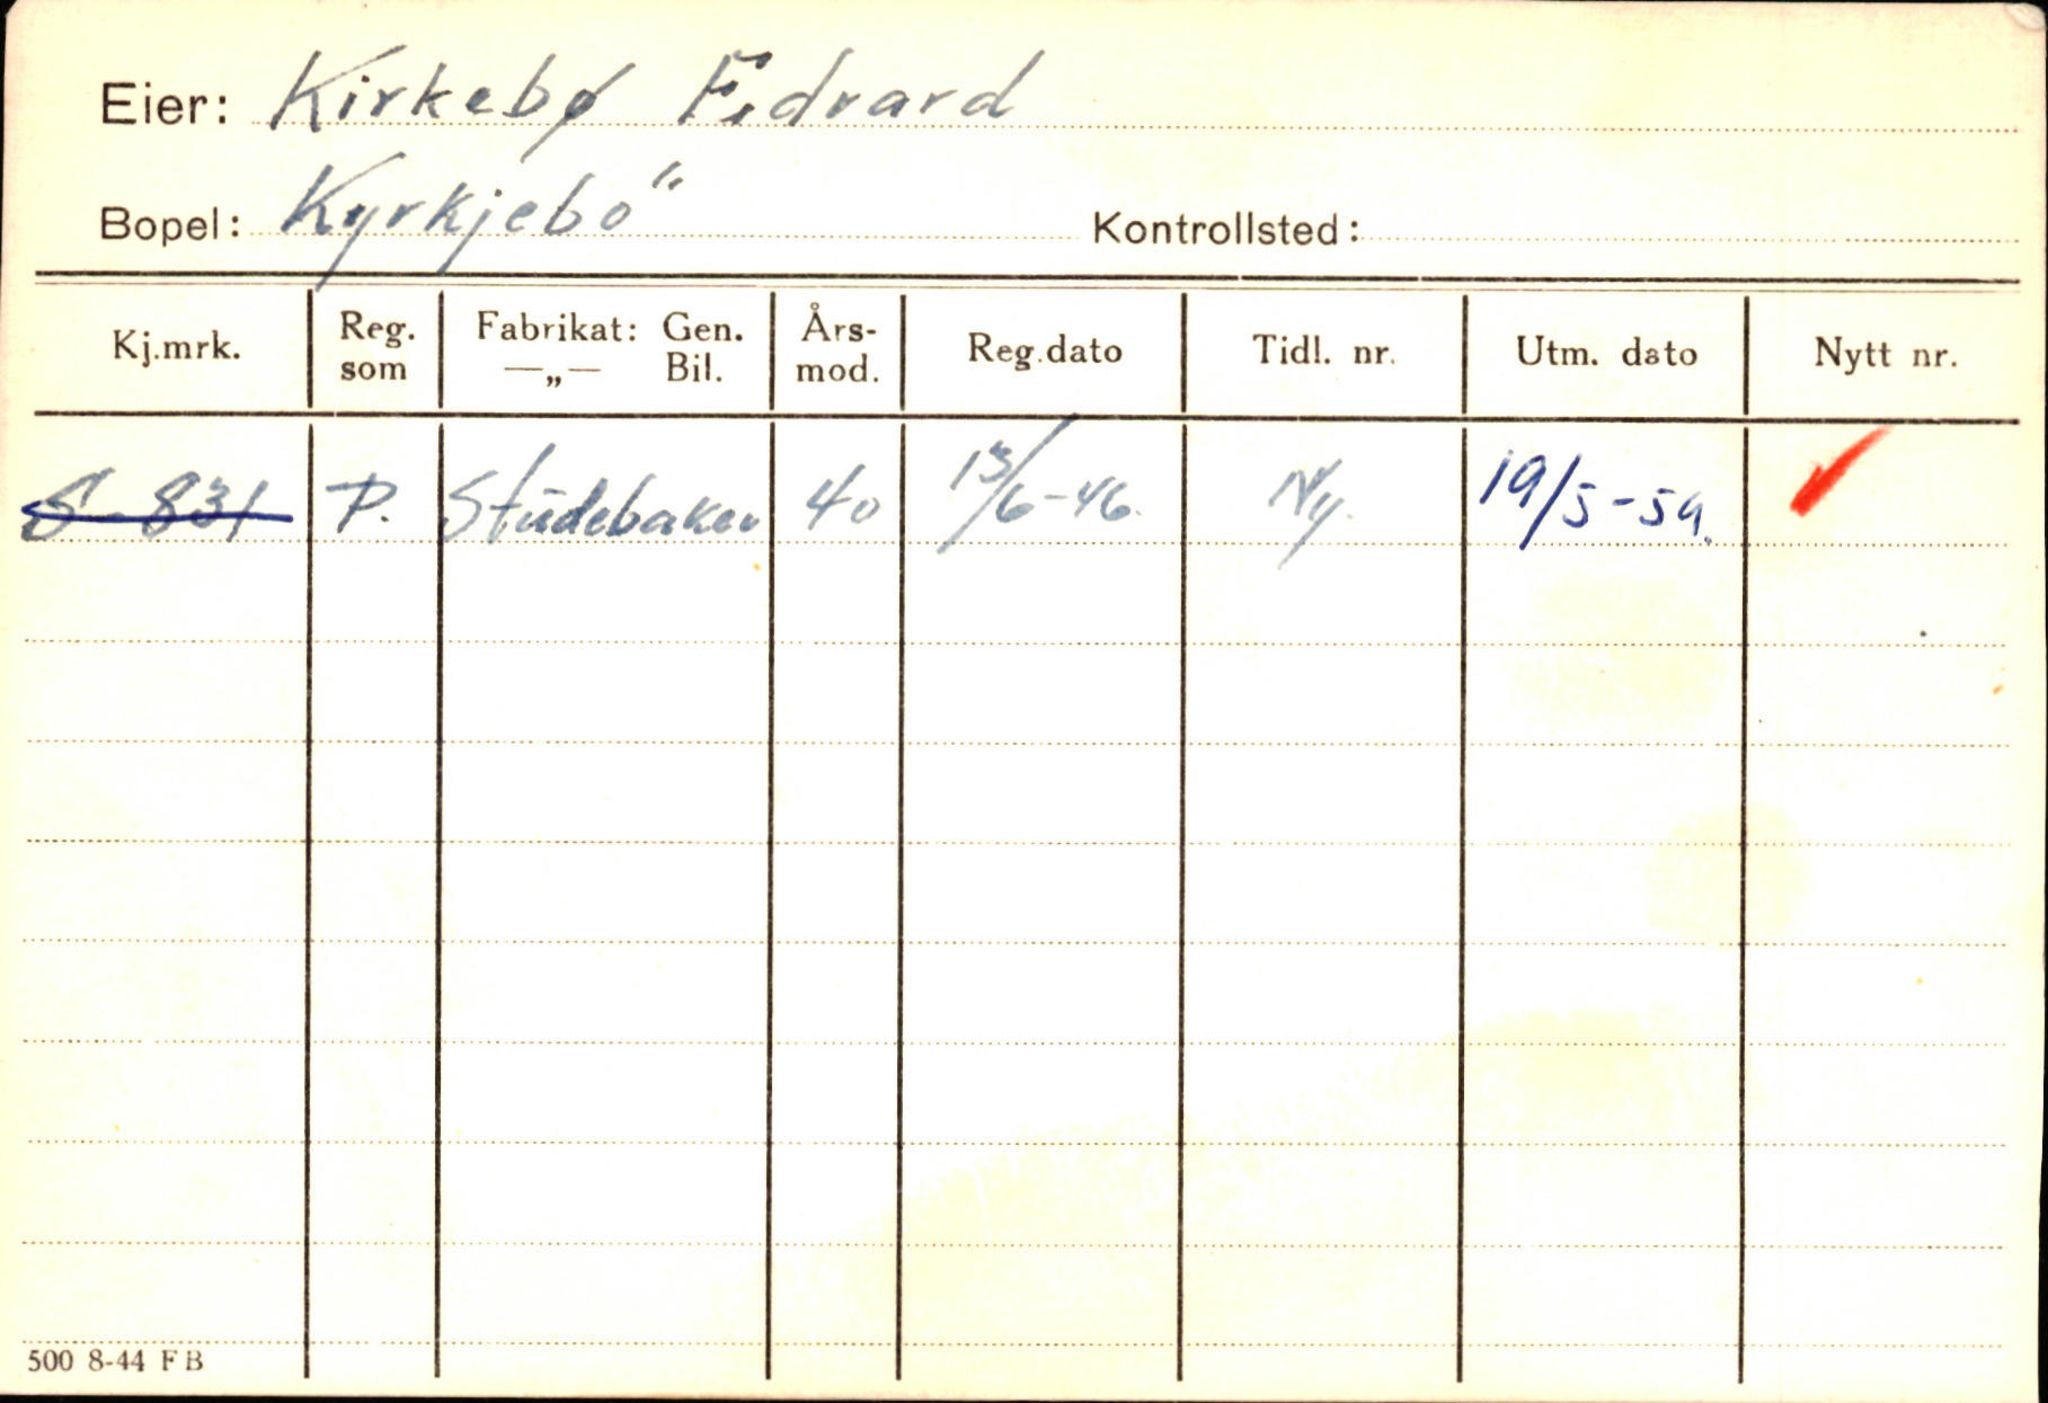 Eier: Kirkebø Edvard
Bopel: Kyrkjebö Kontrollsted:
Kj.mrk. Reg. som Fabrikat: Gen. —„— Bil. Års- mod. Reg.dato Tidl. nr. Utm. dato Nytt nr.
S-831 P. Studebaker 40 13/6-46. Ny. 19/5-59.
500 8-44 FB